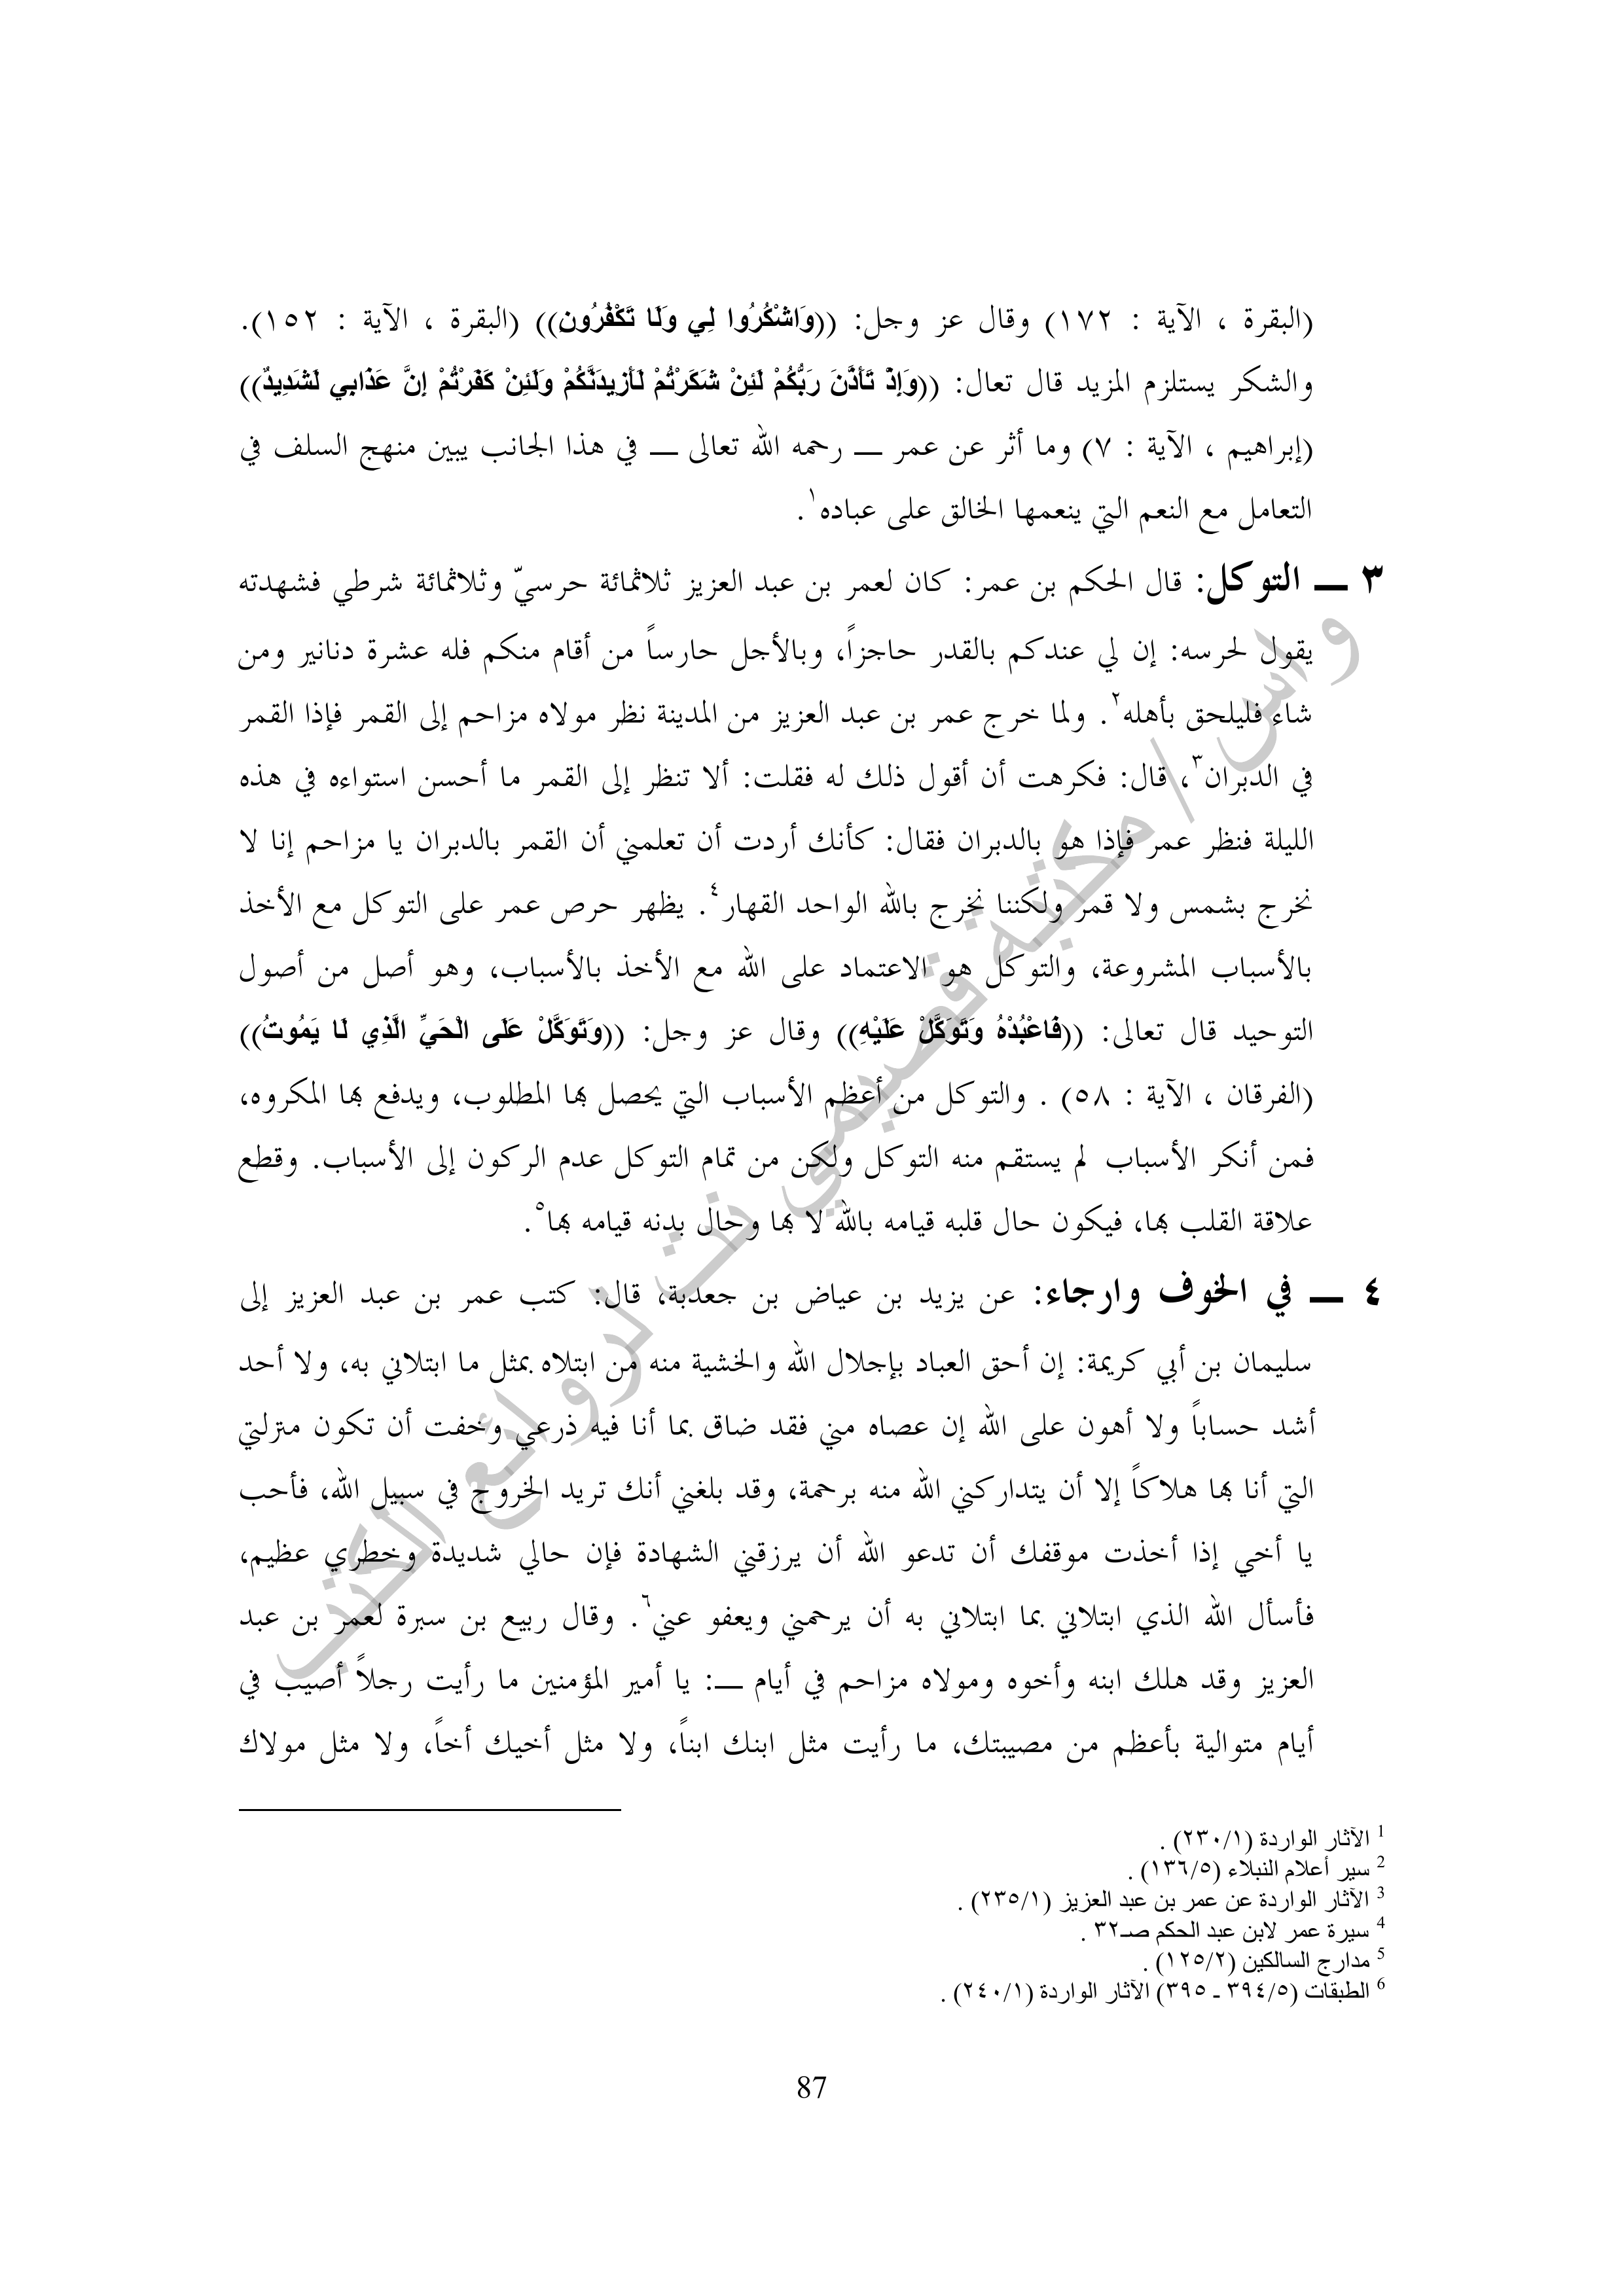 (البقرة ، الآية : ١٧٢) وقال عز وجل: ((وَاشْكُرُوا لِي وَلَا تَكْفُرُونِ)) (البقرة ، الآية : ١٥٢).
والشكر يستلزم المزيد قال تعال: ((وَإِذْ تَأَذَّنَ رَبُّكُمْ لَئِنْ شَكَرْتُمْ لَأَزِيدَنَّكُمْ وَلَئِنْ كَفَرْتُمْ إِنَّ عَذَابِي لَشَدِيدٌ))
(إبراهيم ، الآية : ٧) وما أثر عن عمر ـــ رحمه الله تعالى ـــ في هذا الجانب يبين منهج السلف في
التعامل مع النعم التي ينعمها الخالق على عباده١.
٣ ـــ التوكل: قال الحكم بن عمر: كان لعمر بن عبد العزيز ثلاثمائة حرسيّ وثلاثمائة شرطي فشهدته
يقول لحرسه: إن لي عندكم بالقدر حاجزاً، وبالأجل حارساً من أقام منكم فله عشرة دنانير ومن
شاء فليلحق بأهله٢. ولما خرج عمر بن عبد العزيز من المدينة نظر مولاه مزاحم إلى القمر فإذا القمر
في الدبران٣، قال: فكرهت أن أقول ذلك له فقلت: ألا تنظر إلى القمر ما أحسن استواءه في هذه
الليلة فنظر عمر فإذا هو بالدبران فقال: كأنك أردت أن تعلمني أن القمر بالدبران يا مزاحم إنا لا
نخرج بشمس ولا قمر ولكننا نخرج بالله الواحد القهار٤. يظهر حرص عمر على التوكل مع الأخذ
بالأسباب المشروعة، والتوكل هو الاعتماد على الله مع الأخذ بالأسباب، وهو أصل من أصول
التوحيد قال تعالى: ((فَاعْبُدْهُ وَتَوَكَّلْ عَلَيْهِ)) وقال عز وجل: ((وَتَوَكَّلْ عَلَى الْحَيِّ الَّذِي لَا يَمُوتُ))
(الفرقان ، الآية : ٥٨) . والتوكل من أعظم الأسباب التي يحصل بها المطلوب، ويدفع بها المكروه،
فمن أنكر الأسباب لم يستقم منه التوكل ولكن من تمام التوكل عدم الركون إلى الأسباب. وقطع
علاقة القلب بها، فيكون حال قلبه قيامه بالله لا بها وحال بدنه قيامه بها٥.
٤ ـــ في الخوف وارجاء: عن يزيد بن عياض بن جعدبة، قال: كتب عمر بن عبد العزيز إلى
سليمان بن أبي كريمة: إن أحق العباد بإجلال الله والخشية منه من ابتلاه بمثل ما ابتلاني به، ولا أحد
أشد حساباً ولا أهون على الله إن عصاه مني فقد ضاق بما أنا فيه ذرعي وخفت أن تكون منزلتي
التي أنا بها هلاكاً إلا أن يتداركني الله منه برحمة، وقد بلغني أنك تريد الخروج في سبيل الله، فأحب
يا أخي إذا أخذت موقفك أن تدعو الله أن يرزقني الشهادة فإن حالي شديدة وخطري عظيم،
فأسأل الله الذي ابتلاني بما ابتلاني به أن يرحمني ويعفو عني٦. وقال ربيع بن سبرة لعمر بن عبد
العزيز وقد هلك ابنه وأخوه ومولاه مزاحم في أيام ـــ: يا أمير المؤمنين ما رأيت رجلاً أصيب في
أيام متوالية بأعظم من مصيبتك، ما رأيت مثل ابنك ابناً، ولا مثل أخيك أخاً، ولا مثل مولاك
1 الآثار الواردة (٢٣٠/١) .
2 سير أعلام النبلاء (١٣٦/٥) .
3 الآثار الواردة عن عمر بن عبد العزيز (٢٣٥/١) .
4 سيرة عمر لابن عبد الحكم صـ٣٢ .
5 مدارج السالكين (١٢٥/٢) .
6 الطبقات (٣٩٤/٥ ـ ٣٩٥) الآثار الواردة (٢٤٠/١) .
87